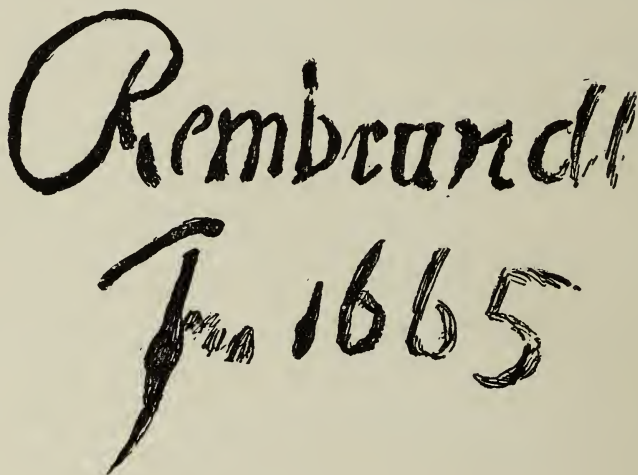 Rembrandt
1665